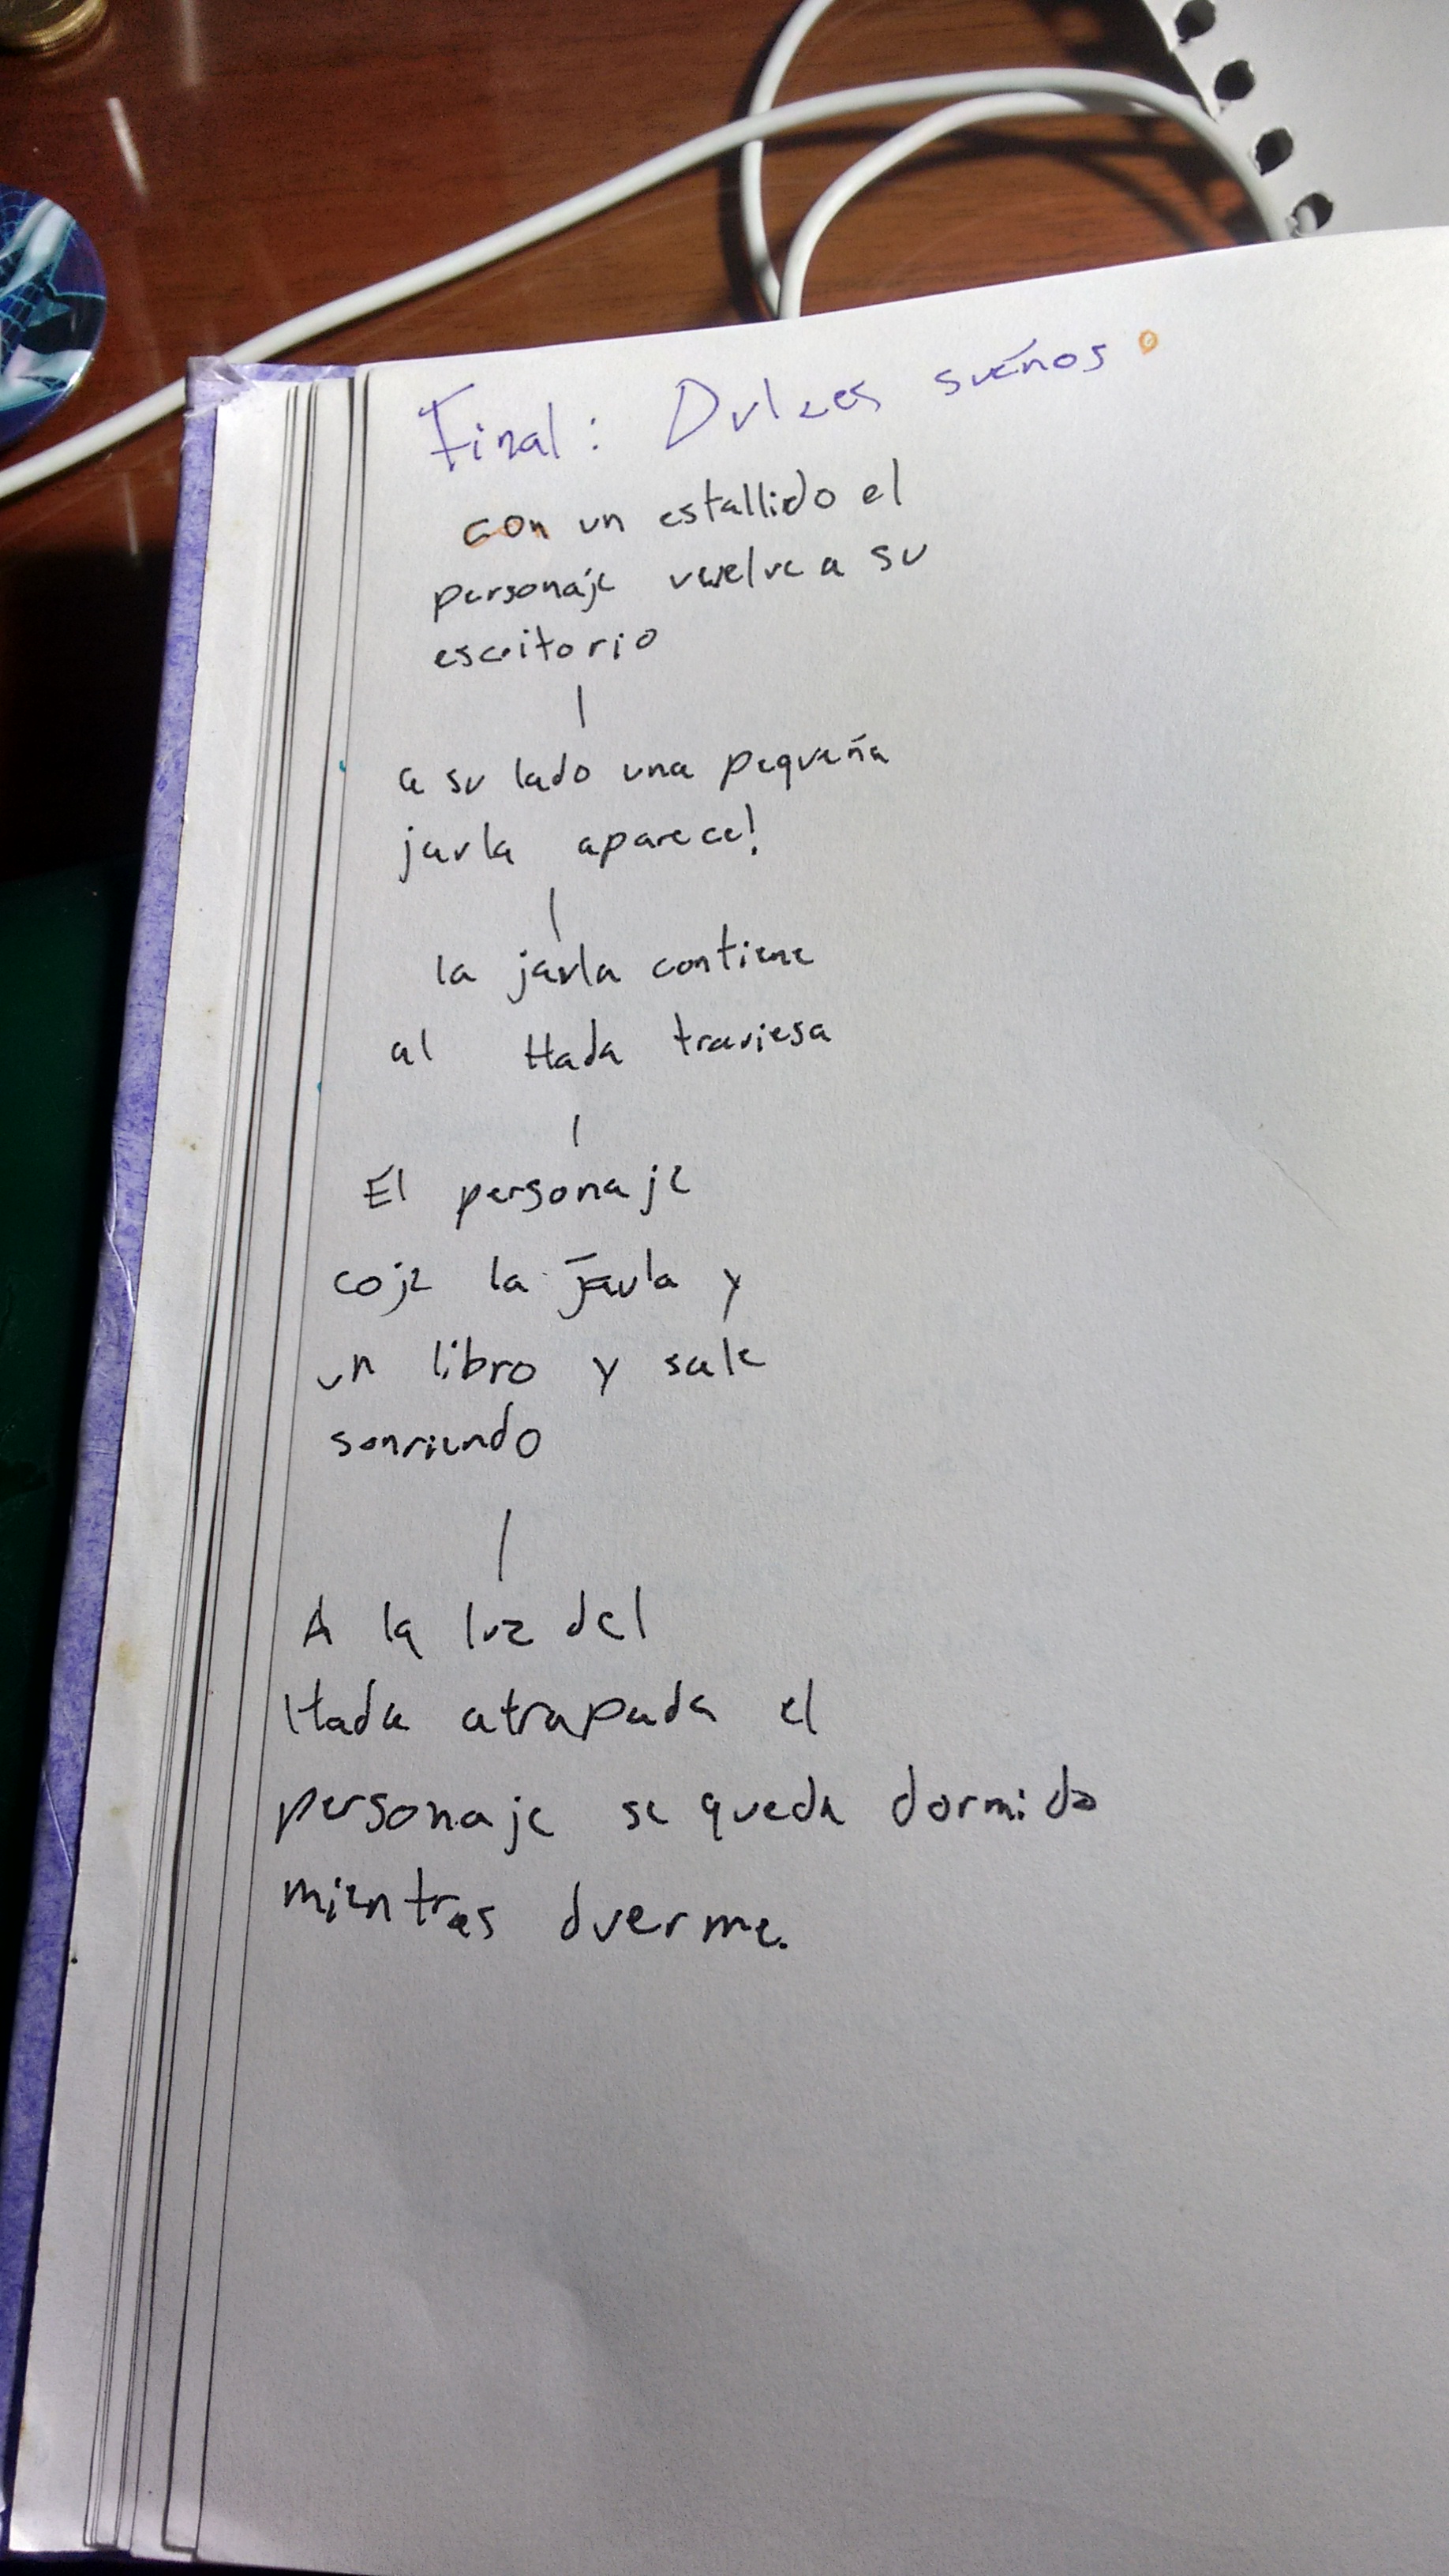 Final: Dulces sueños.
con un estallido el
personaje vuelve a su
escritorio
a su lado una pequeña
jaula aparece!
la jaula contiene
al Hada traviesa
El personaje
coje la jaula y
un libro y sale
sonriendo
A la luz del
Hada atrapada el
personaje se queda dormido
mientras duerme.